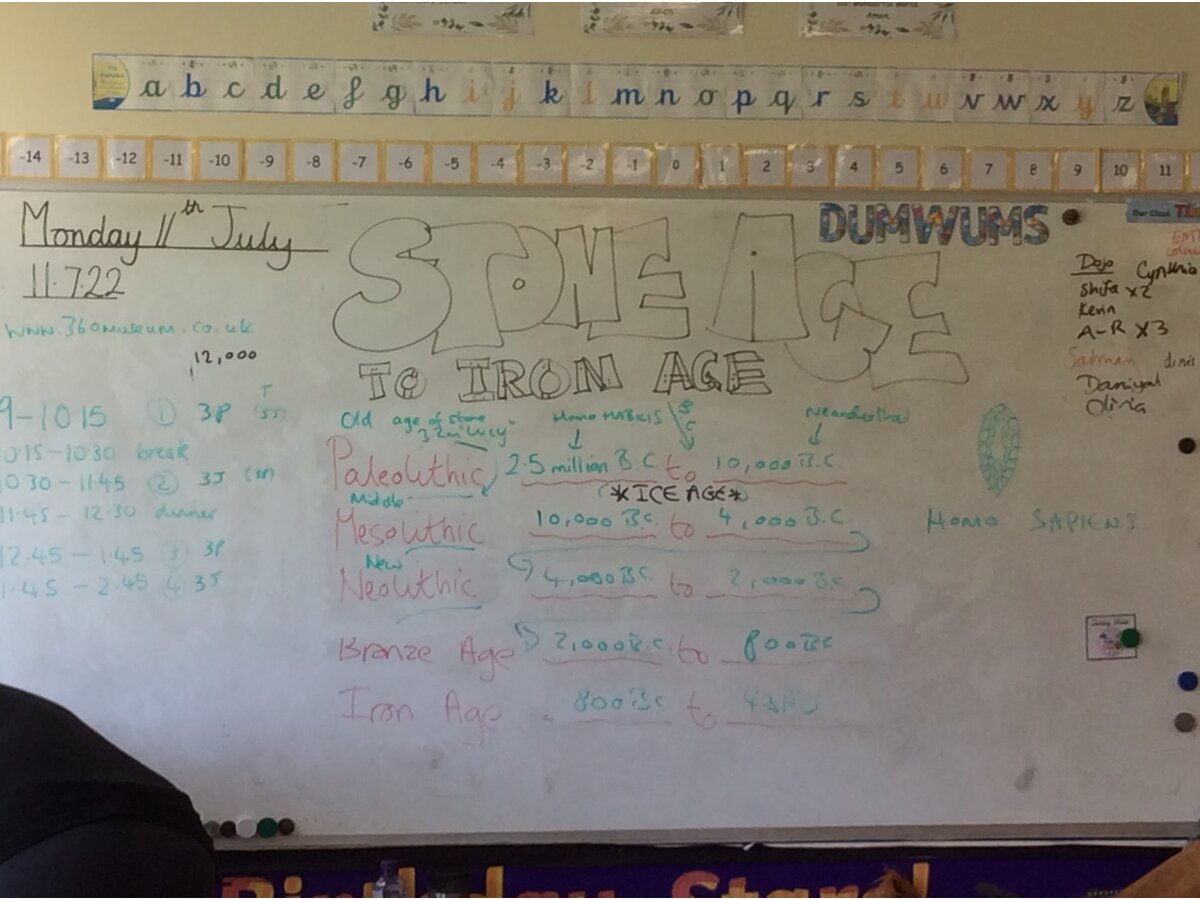 Amen.
a b c d e f g h i j k l m n o p q r s t u v w x y z
-14 -13 -12 -11 -10 -9 -8 -7 -6 -5 -4 -3 -2 -1 0 1 2 3 4 5 6 7 8 9 10 11
Monday 11th July
11.7.22
www.360museum.co.uk
12,000
9-1015 1 3P
10:15-10:30 break
10:30-11:45 2 3J
11.45 - 12.30 dinner
12.45 - 1.45 3 3P
1.45 - 2.45 4 3J
STONE AGE
TO IRON AGE
Old age of stone Homo HABILIS Neanderthal
3.2m "Lucy"
Paleolithic 2.5 million B.C to 10,000 B.C.
*ICE AGE*
Middle
Mesolithic 10,000 BC. to 4,000 B.C.
New
Neolithic 4,000 BC. to 2,000 B.C.
Bronze Age 2,000 B.C. to 800 BC
Iron Age 800 BC to
HOMO SAPIENS
DUMWUMS
Our Class
Dojo Cynthia
Shifa x2
Kevin
A-R x3
Salman
Daniyal
Olivia
Birthday Stars!